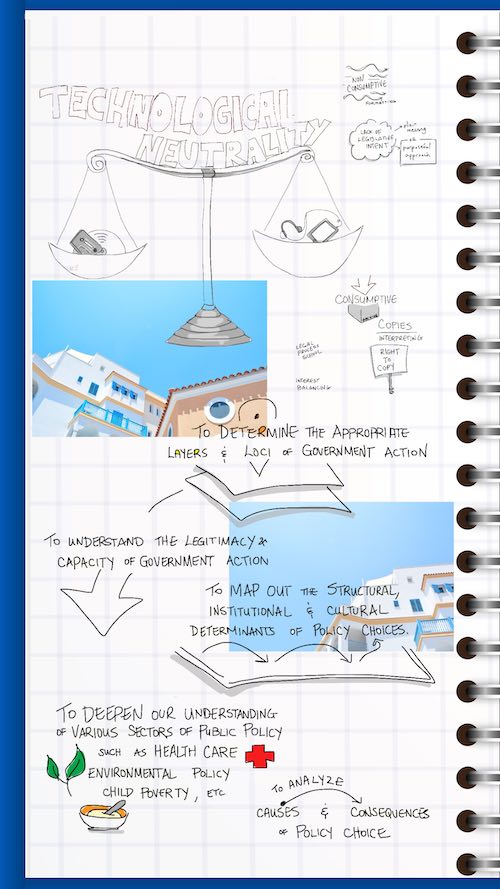 TECHNOLOGICAL
NEUTRALITY
NON
CONSUMPTIVE
LACK OF
LEGISLATIVE
INTENT
plain
meaning
purposeful
approach
CONSUMPTIVE
COPIES
INTERPRETING
RIGHT
TO
COPY
LEGAL
PROCESS
INTEREST
BALANCING
TO DETERMINE THE APPROPRIATE
LAYERS & LOCI OF GOVERNMENT ACTION
TO UNDERSTAND THE LEGITIMACY &
CAPACITY OF GOVERNMENT ACTION
TO MAP OUT THE STRUCTURAL,
INSTITUTIONAL & CULTURAL
DETERMINANTS OF POLICY CHOICES.
TO DEEPEN OUR UNDERSTANDING
OF VARIOUS SECTORS OF PUBLIC POLICY
SUCH AS HEALTH CARE
ENVIRONMENTAL POLICY
CHILD POVERTY, ETC
TO ANALYZE
CAUSES & CONSEQUENCES
OF POLICY CHOICE